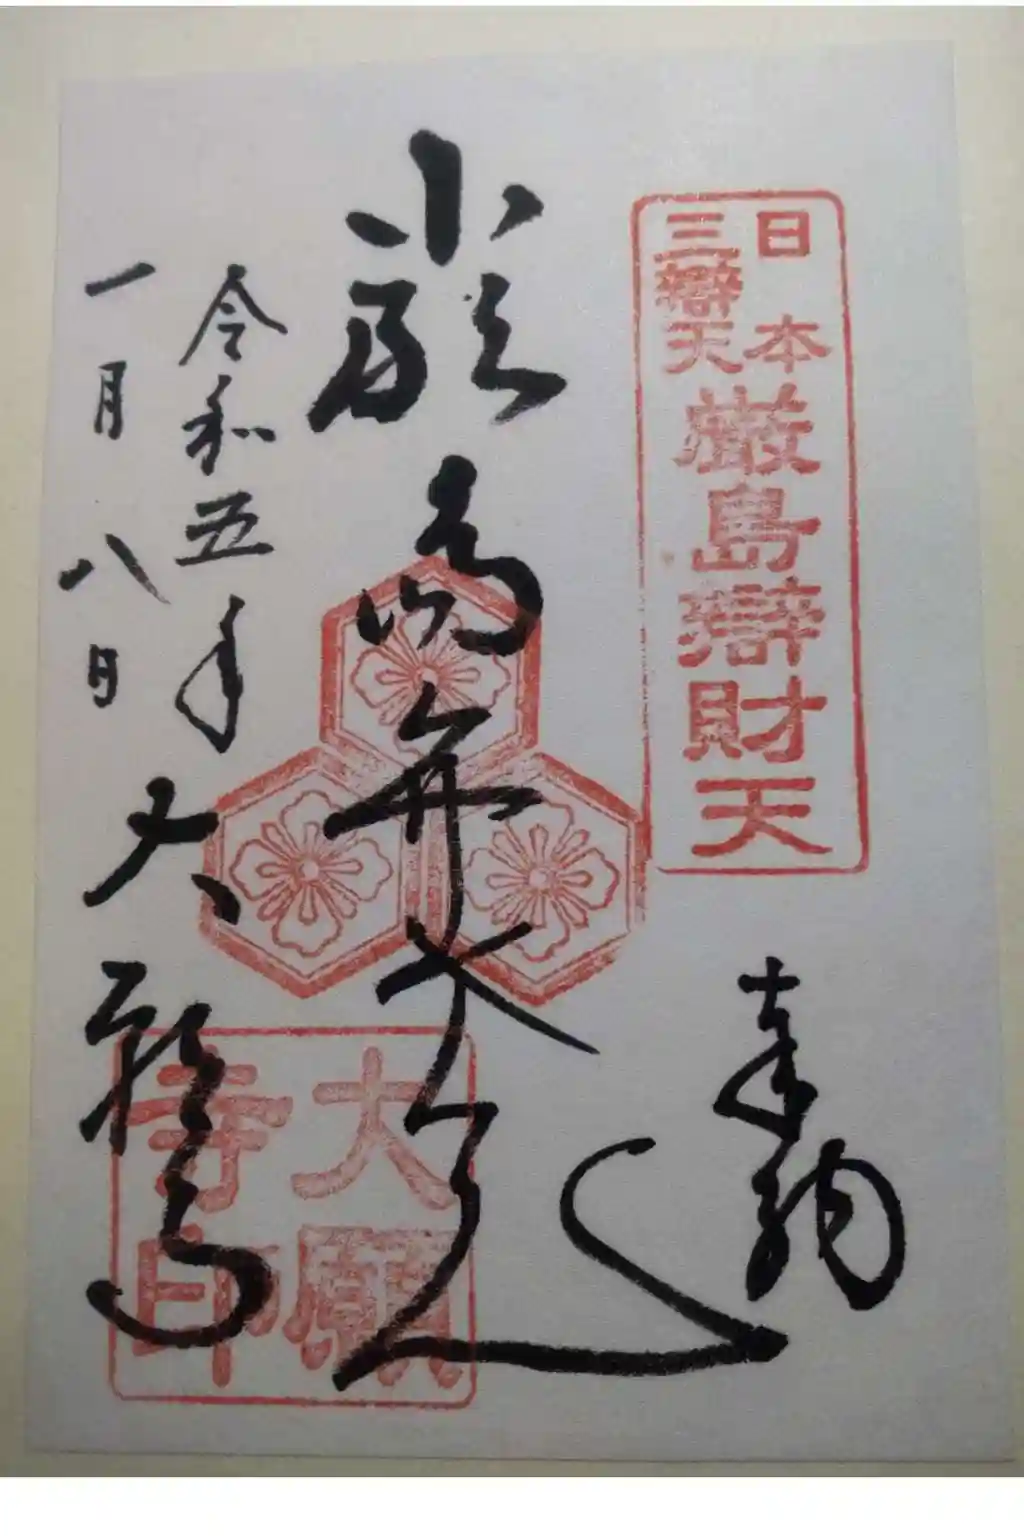 日本
三辯天
厳島辯財天
奉納
嚴島弁才天
令和五年
一月八日
大願寺
大願
寺印